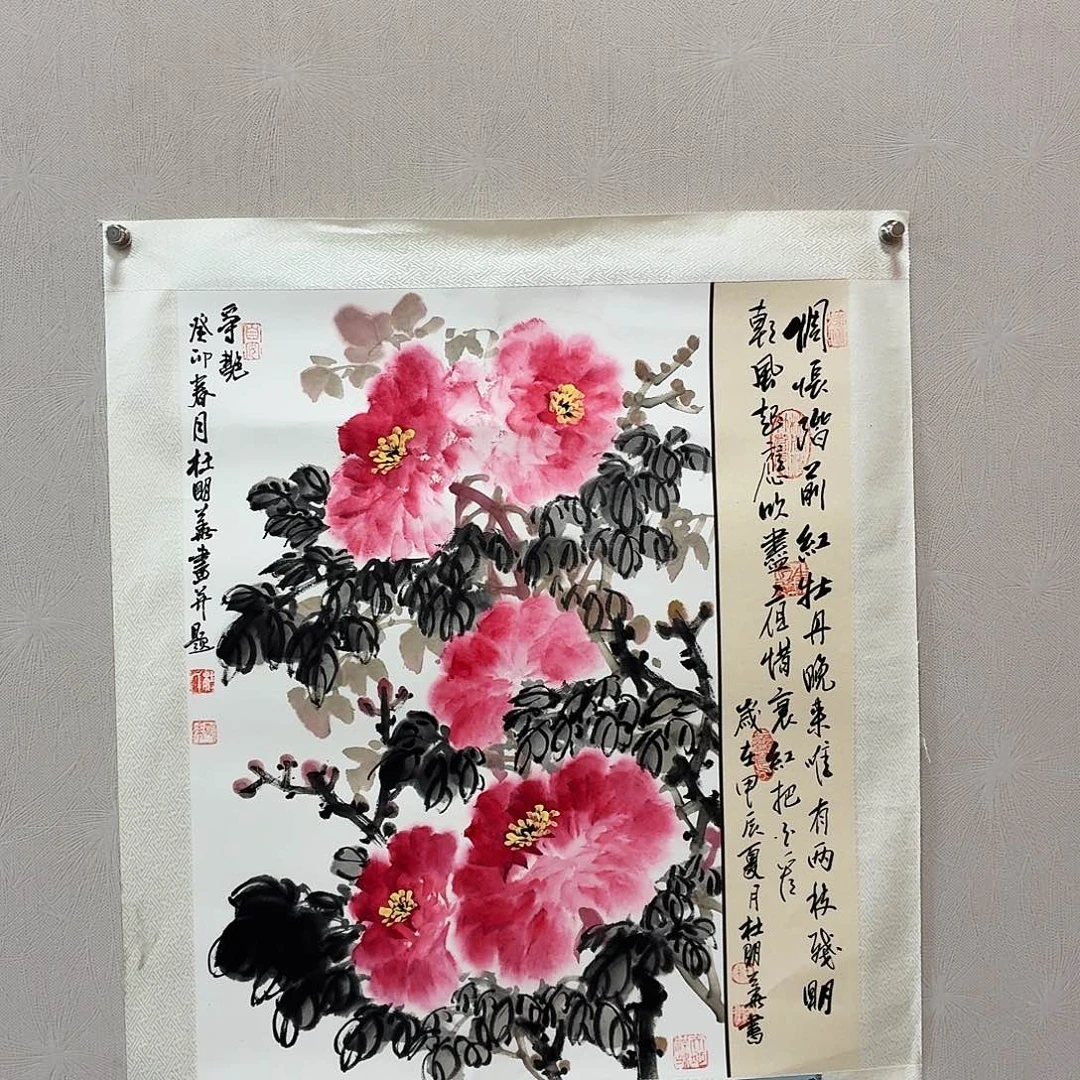 惆悵階前紅牡丹晚來唯有兩枝殘明
朝風起應吹盡夜惜衰紅把火看
歲在甲辰夏月杜明義書
爭艷
癸卯春月杜明義畫并題